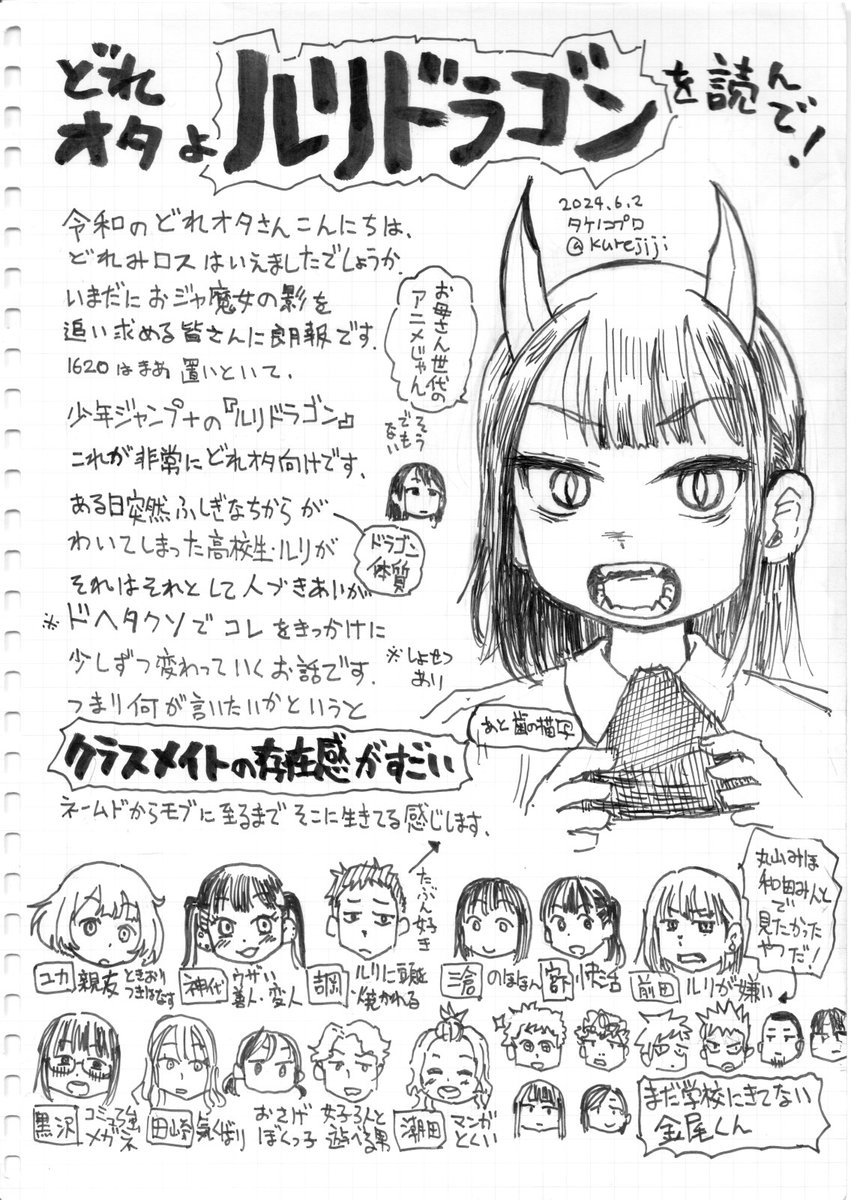 どれ
オタよ
ルリドラゴン
を読んで!
2024.6.2
タケノコプロ
@kurejiji
令和のどれオタさんこんにちは、
どれみロスはいえましたでしょうか.
いまだにおジャ魔女の影を
追い求める皆さんに朗報です.
1620はまあ置いといて、
お母さん世代の
アニメじゃん
そう
でも
ない
少年ジャンプ+の『ルリドラゴン』
これが非常にどれオタ向けです.
ある日突然ふしぎなちからが
わいてしまった高校生・ルリが
ドラゴン
体質
それはそれとして人づきあいが
※ドヘタクソでコレをきっかけに
少しずつ変わっていくお話です.
※しょせつ
あり
つまり何が言いたいかというと
あと歯の描写
クラスメイトの存在感がすごい
ネームドからモブに至るまでそこに生きてる感じします.
たぶん好き
丸山みほ
和田みんと
で
見たかった
やつだ!
ユカ
親友
ときおり
つきはなす
神代
ウザい
善人・変人
吉岡
ルリに頭を
焼かれる
三倉
のほほん
宮下
快活
前田
ルリが嫌い
黒沢
コミュ強
メガネ
田崎
気くばり
おさげ
ぼくっ子
女子3人と
遊べる男
潮田
マンガ
とくい
まだ学校にきてない
金尾くん